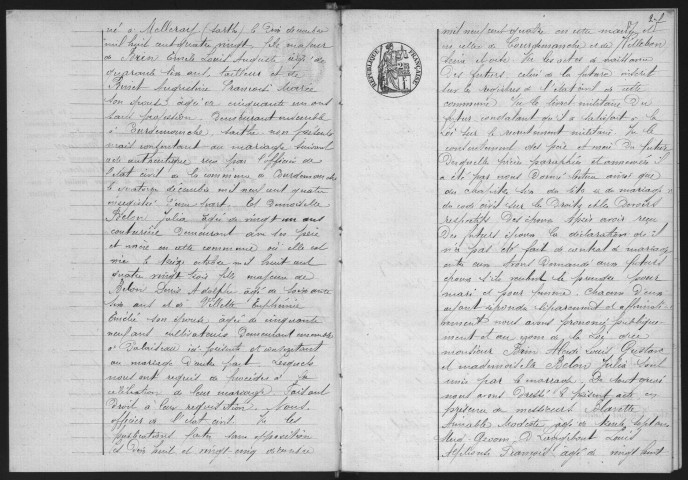 né à Melleray (Sarthe) le Dix décembre
mil huit cent quatre vingt fils majeur
de Louis Auguste âgé de
quarante six ans, tailleur et de
Augustine
son épouse âgée de cinquante un ans
sans profession Demeurant ensemble
à Courdemanche, Sarthe non présents
mais consentant au mariage suivant
acte authentique reçu par l'officier de
l'état civil de la commune de Courdemanche
le quatorze décembre mil neuf cent quatre
enregistré d'une part. Et Demoiselle
Belon Julia âgée de vingt un ans
couturière Demeurant avec ses père
et mère en cette commune où elle est
née le treize octobre mil huit cent
quatre vingt trois fille majeure de
Belon Louis Adolphe âgé de soixante
six ans et de Euphémie
Emélie son épouse âgée de cinquante
neuf ans, cultivateurs Demeurant ensemble
à ici présents et consentant
au mariage D'autre part. Lesquels
nous ont requis de procéder à la
célébration de leur mariage. Faisant
Droit à leur réquisition, Nous,
officier de l'état civil Vu les
publications faites sans opposition
les Dix huit et vingt-cinq décembre
27
mil neuf cent quatre en cette mairie et
en celles de Courdemanche et de Villebon
Seine Vu les actes de naissance
Des futurs celui de la future inscrit
sur les registres de l'état civil de cette
commune Vu le livret militaire Du
futur constatant qu'il a satisfait à la
Loi sur le recrutement militaire. Vu le
consentement des père et mère Du futur
Desquelles pièces paraphées et annexées il
a été par nous Donné lecture ainsi que
des chapitres six du titre de mariage
du code civil sur les Droits et les Devoirs
respectifs Des époux Après avoir reçu
Des futurs époux la déclaration qu'il
n'a pas été fait de contrat de mariage
entre eux Avons Demandé aux futurs
époux s'ils veulent se prendre pour
mari et pour femme. Chacun D'eux
ayant répondu séparément et affirmati-
vement nous avons prononcé publique-
ment et au nom de la Loi que
monsieur Alfred Louis Gustave
et mademoiselle Belon Julia sont
unis par le mariage. De tout quoi
nous avons Dressé le présent acte en
présence de messieurs
Modeste âgé de trente sept ans
Louis
Alphonse François âgé de vingt huit
RÉPUBLIQUE FRANÇAISE